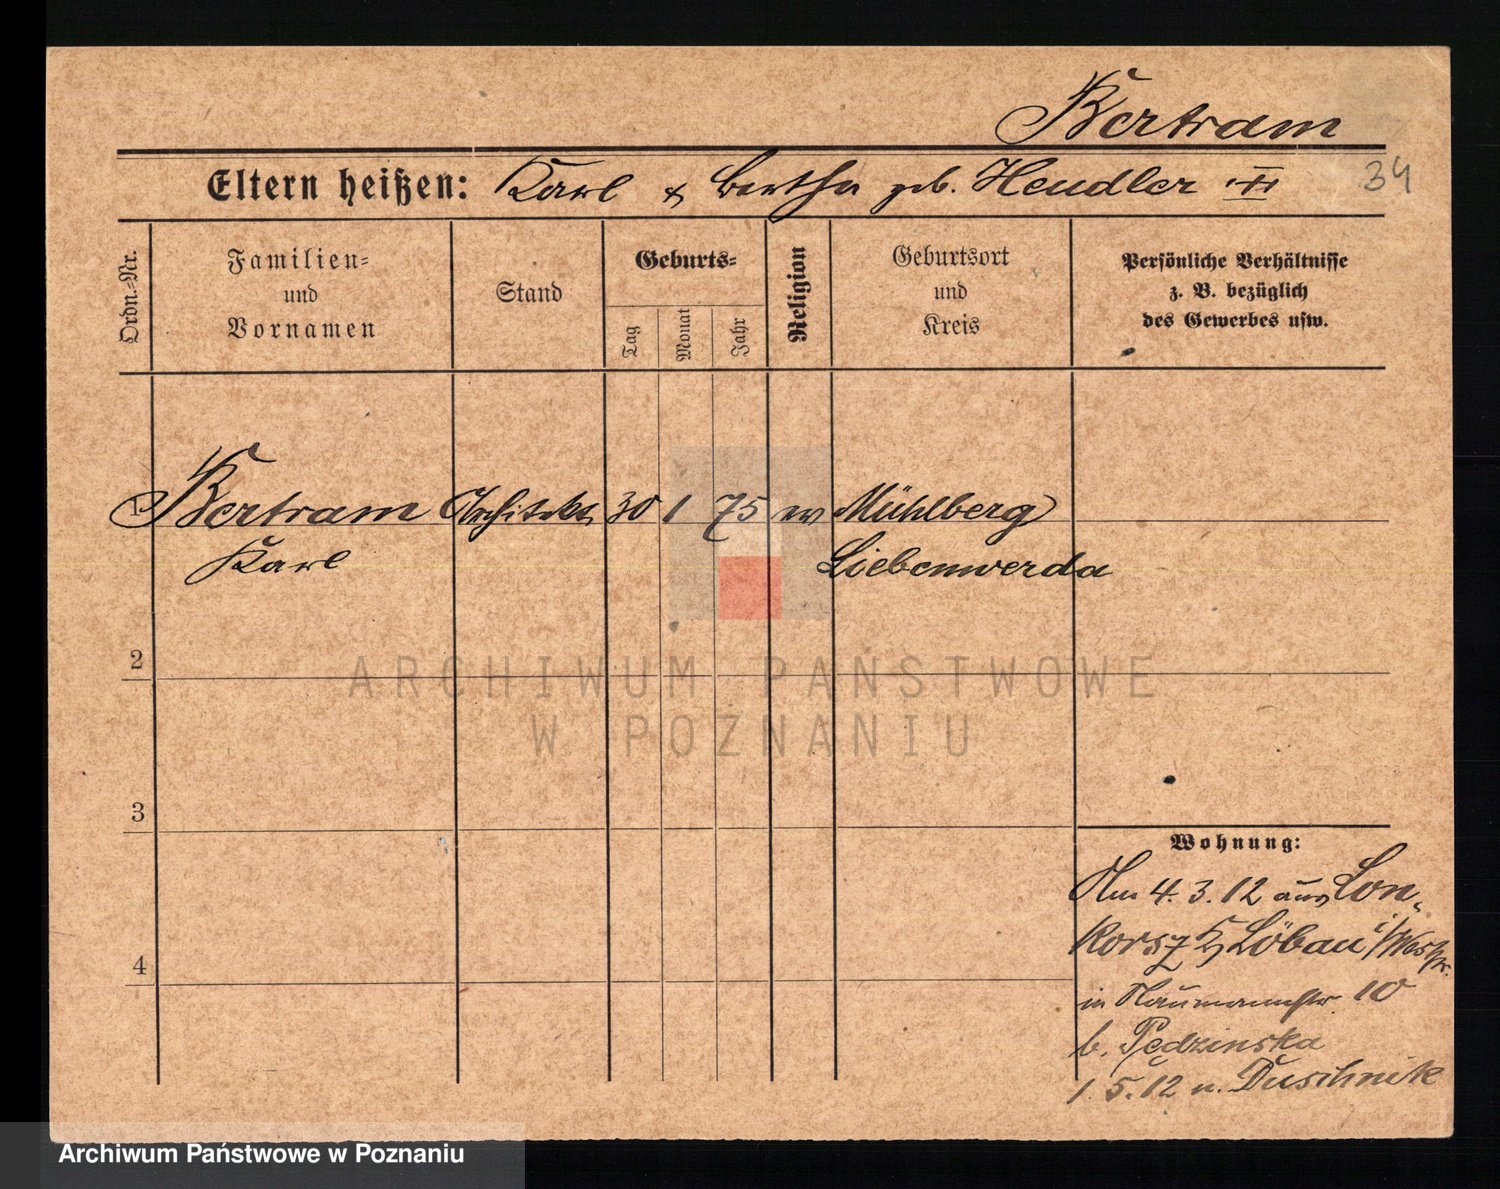 Bertram
Eltern heißen: Karl & Bertha geb. Hendler
34
Ordn.-Nr.
Familien-
und
Vornamen
Stand
Geburts-
Tag
Monat
Jahr
Religion
Geburtsort
und
Kreis
Persönliche Verhältnisse
z. B. bezüglich
des Gewerbes usw.
1 Bertram Architekt 30 1 75 ev Mühlberg
Karl Liebenwerda
2
ARCHIWUM PAŃSTWOWE
W POZNANIU
3
Wohnung:
Am 4.3.12 aus Lon-
korsz Löbau i/Westpr.
4
in Naumannstr. 10
b. Pędzinska
1.5.12 n. Duschnik
Archiwum Państwowe w Poznaniu